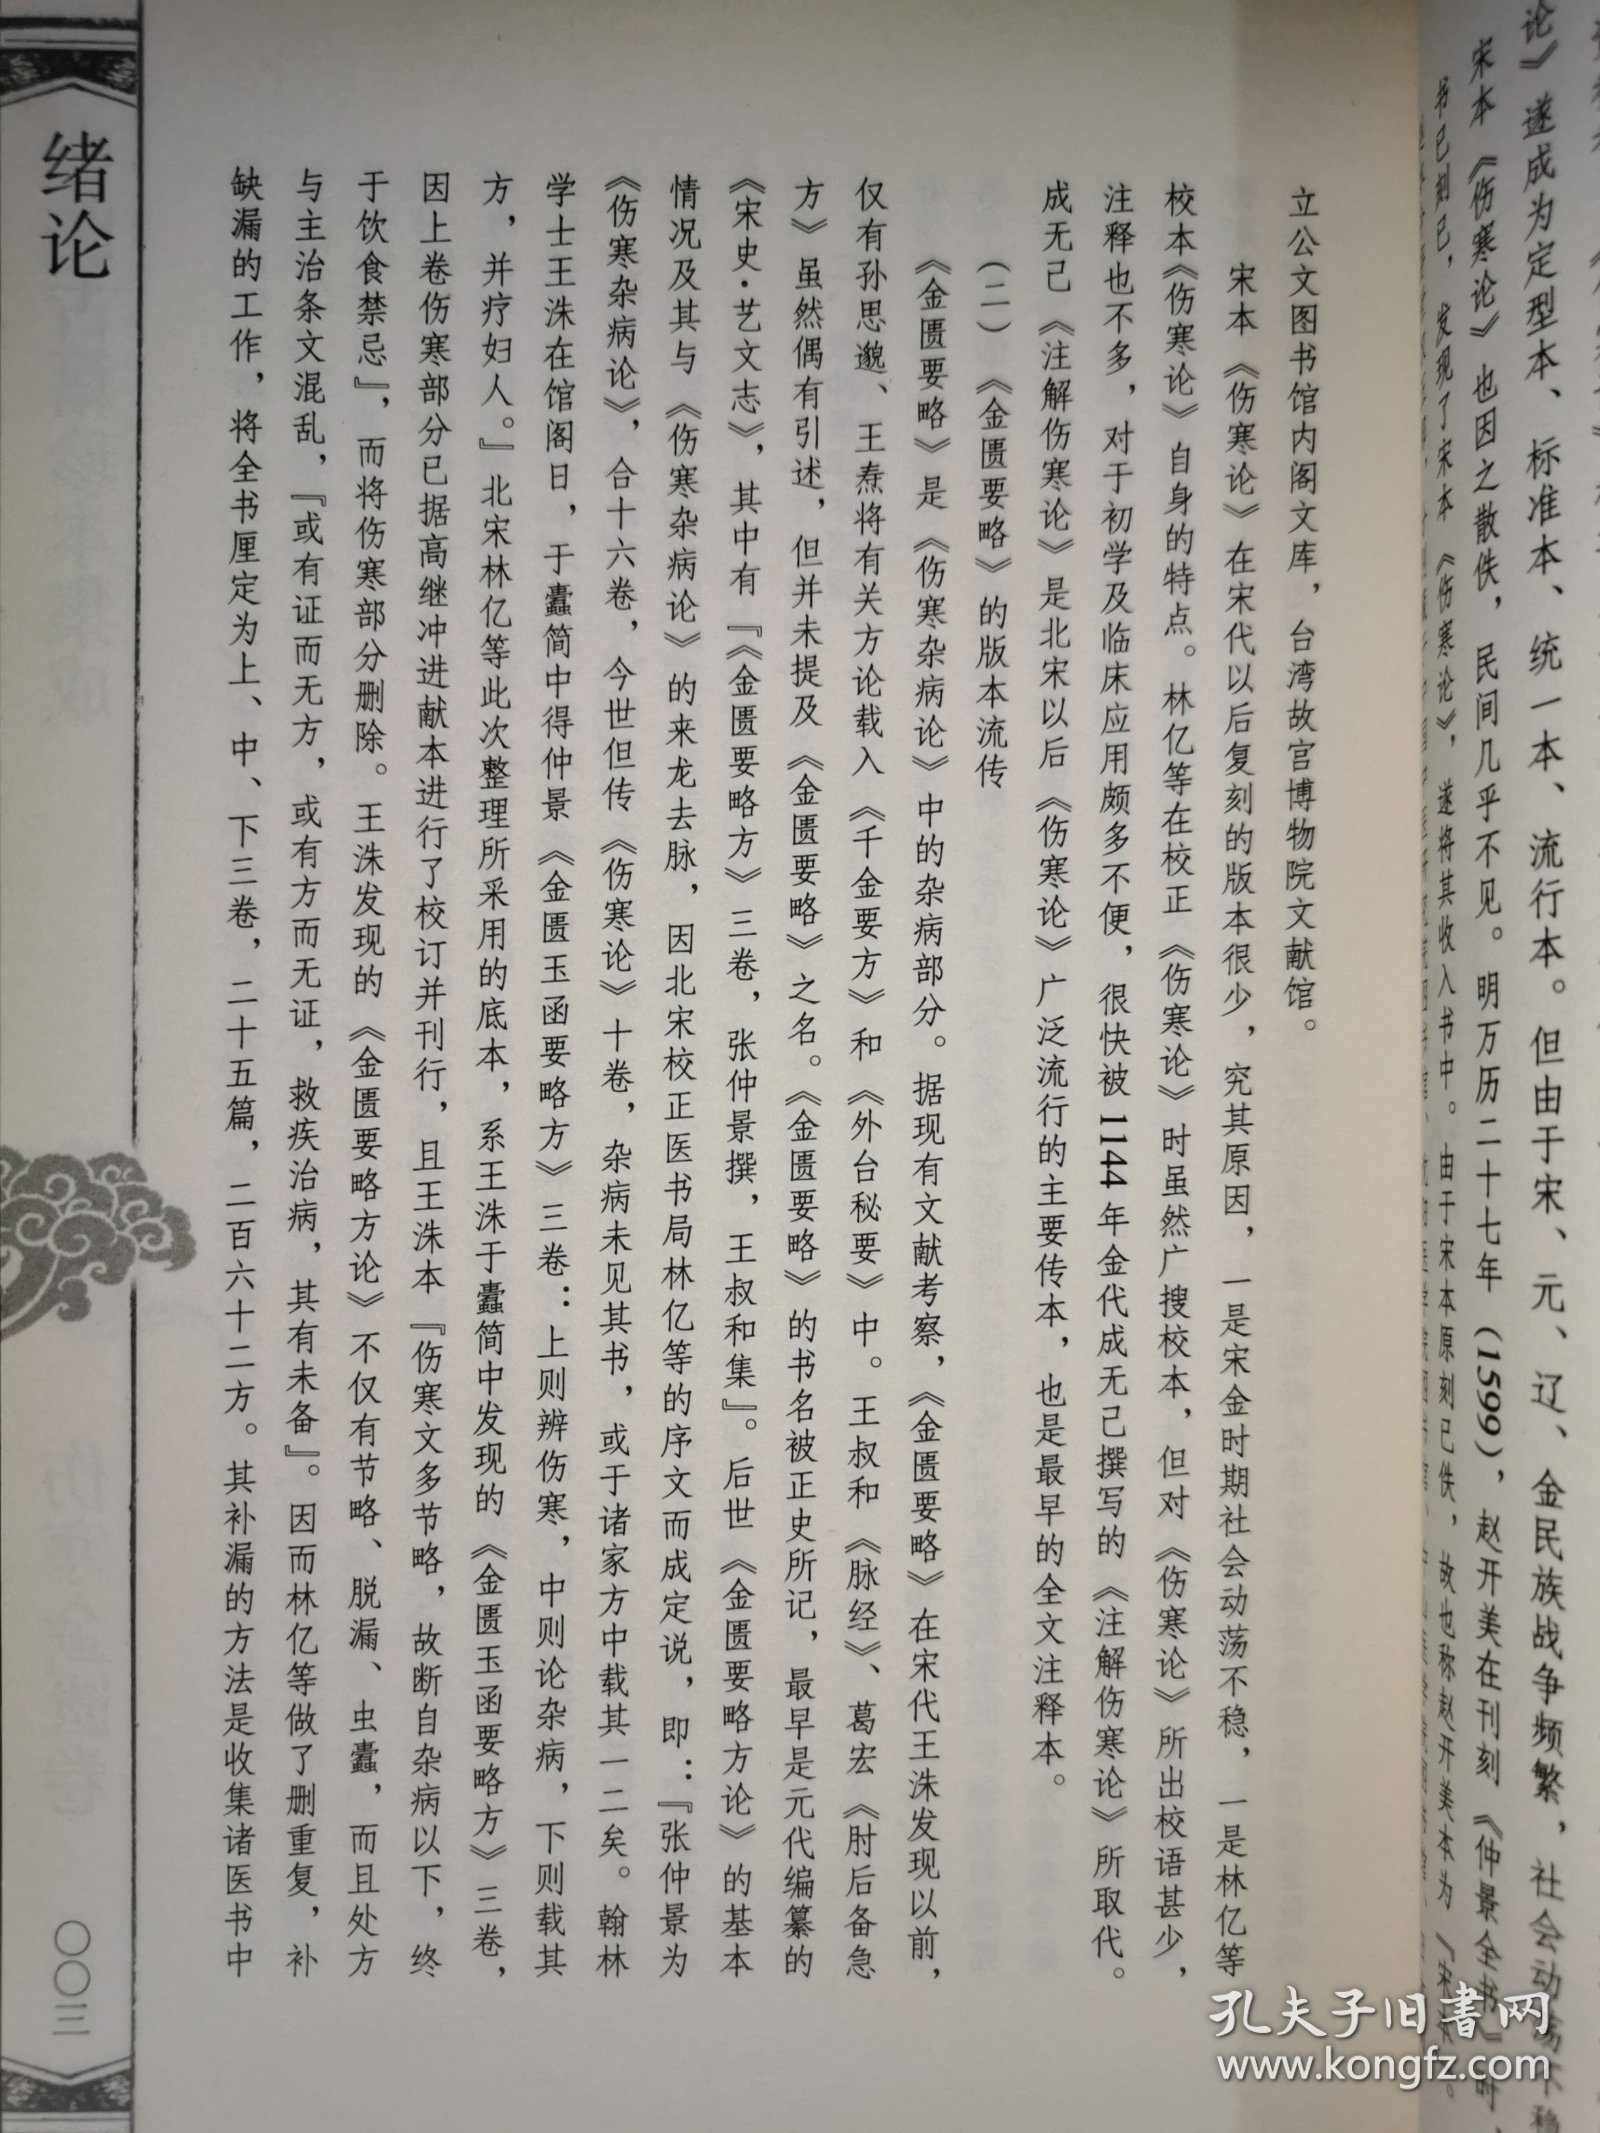 论》遂成为定型本、标准本、统一本、流行本。但由于宋、元、辽、金民族战争频繁，社会动荡不稳
宋本《伤寒论》也因之散佚，民间几乎不见。明万历二十七年（1599），赵开美在刊刻《仲景全书》时，
书已刻已，发现了宋本《伤寒论》，遂将其收入书中。由于宋本原刻已佚，故也称赵开美本为《宋本
立公文图书馆内阁文库，台湾故宫博物院文献馆。
宋本《伤寒论》在宋代以后复刻的版本很少，究其原因，一是宋金时期社会动荡不稳，一是林亿等
校本《伤寒论》自身的特点。林亿等在校正《伤寒论》时虽然广搜校本，但对《伤寒论》所出校语甚少，
注释也不多，对于初学及临床应用颇多不便，很快被1144年金代成无己撰写的《注解伤寒论》所取代。
成无己《注解伤寒论》是北宋以后《伤寒论》广泛流行的主要传本，也是最早的全文注释本。
（二）《金匮要略》的版本流传
《金匮要略》是《伤寒杂病论》中的杂病部分。据现有文献考察，《金匮要略》在宋代王洙发现以前，
仅有孙思邈、王焘将有关方论载入《千金要方》和《外台秘要》中。王叔和《脉经》、葛宏《肘后备急
方》虽然偶有引述，但并未提及《金匮要略》之名。《金匮要略》的书名被正史所记，最早是元代编纂的
《宋史·艺文志》，其中有『《金匮要略方》三卷，张仲景撰，王叔和集』。后世《金匮要略方论》的基本
情况及其与《伤寒杂病论》的来龙去脉，因北宋校正医书局林亿等的序文而成定说，即：『张仲景为
《伤寒杂病论》，合十六卷，今世但传《伤寒论》十卷，杂病未见其书，或于诸家方中载其一二矣。翰林
学士王洙在馆阁日，于蠹简中得仲景《金匮玉函要略方》三卷：上则辨伤寒，中则论杂病，下则载其
方，并疗妇人。』北宋林亿等此次整理所采用的底本，系王洙于蠹简中发现的《金匮玉函要略方》三卷，
因上卷伤寒部分已据高继冲进献本进行了校订并刊行，且王洙本『伤寒文多节略，故断自杂病以下，终
于饮食禁忌』，而将伤寒部分删除。王洙发现的《金匮要略方论》不仅有节略、脱漏、虫蠹，而且处方
与主治条文混乱，『或有证而无方，或有方而无证，救疾治病，其有未备』。因而林亿等做了删重复，补
缺漏的工作，将全书厘定为上、中、下三卷，二十五篇，二百六十二方。其补漏的方法是收集诸医书中
绪论
〇〇三
孔夫子旧书网
www.kongfz.com